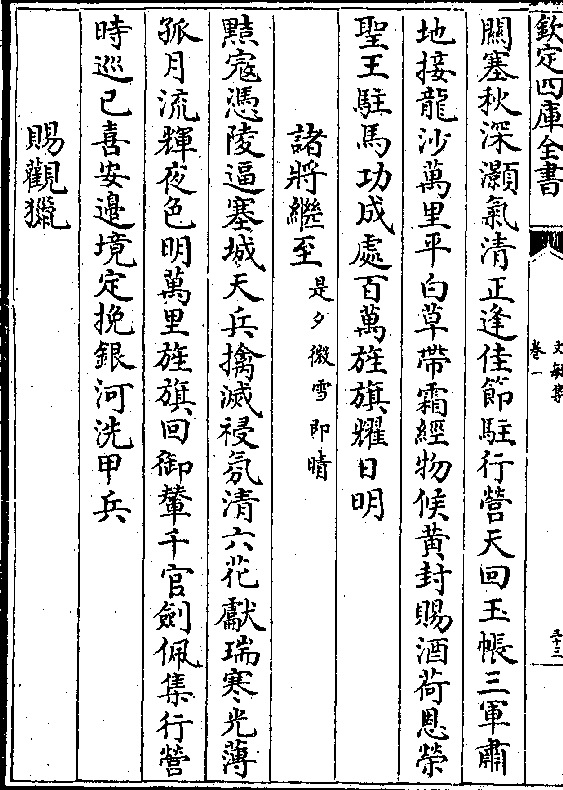 欽定四庫全書
文敏集
卷一
三十三
關塞秋深灝氣清正逢佳節駐行營天回玉帳三軍肅
地接龍沙萬里平白草帶霜經物候黄封賜酒荷恩榮
聖王駐馬功成處百萬旌旗耀日明
諸將繼至是夕微雪即晴
黠寇憑陵逼塞城天兵擒滅祲氛清六花獻瑞寒光薄
孤月流輝夜色明萬里旌旗回御輦千官劍佩集行營
時巡已喜安邊境定挽銀河洗甲兵
賜觀獵